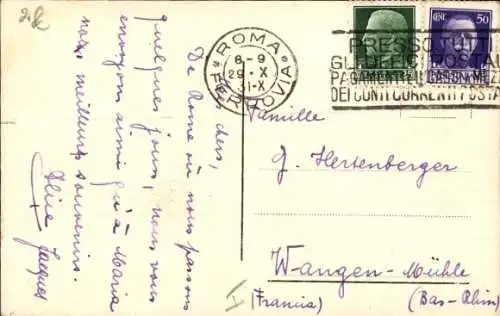 2.k
ROMA
8-9
29·X
31-X
FERROVIA
CENT. 50
PRESSO TUTTI
GLI UFFICI POSTALI
PAGAMENTI A
DEI CONTI CORRENTI POSTALI
chers,
De Rome où nous passons
quelques jours, nous vous
envoyons ainsi qu'à Maria
nos meilleurs souvenirs.
Alice Jacques
Famille
J. Hertenberger
Wangen-Mühle
(Francia) (Bas-Rhin)